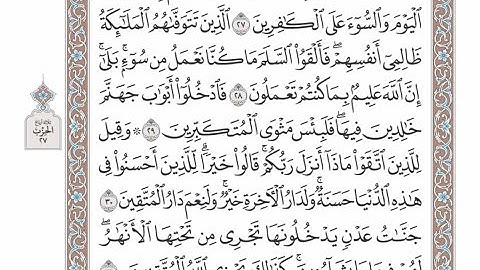 ٱلْيَوْمَ وَٱلسُّوٓءَ عَلَى ٱلْكَٰفِرِينَ ٢٧ ٱلَّذِينَ تَتَوَفَّىٰهُمُ ٱلْمَلَٰٓئِكَةُ
ظَالِمِىٓ أَنفُسِهِمْ ۖ فَأَلْقَوُا۟ ٱلسَّلَمَ مَا كُنَّا نَعْمَلُ مِن سُوٓءٍۭ ۚ بَلَىٰٓ
إِنَّ ٱللَّهَ عَلِيمٌۢ بِمَا كُنتُمْ تَعْمَلُونَ ٢٨ فَٱدْخُلُوٓا۟ أَبْوَٰبَ جَهَنَّمَ
خَٰلِدِينَ فِيهَا ۖ فَلَبِئْسَ مَثْوَى ٱلْمُتَكَبِّرِينَ ٢٩ ۞ وَقِيلَ
لِلَّذِينَ ٱتَّقَوْا۟ مَاذَآ أَنزَلَ رَبُّكُمْ ۚ قَالُوا۟ خَيْرًا ۗ لِّلَّذِينَ أَحْسَنُوا۟ فِى
هَٰذِهِ ٱلدُّنْيَا حَسَنَةٌ ۚ وَلَدَارُ ٱلْءَاخِرَةِ خَيْرٌ ۚ وَلَنِعْمَ دَارُ ٱلْمُتَّقِينَ ٣٠
جَنَّٰتُ عَدْنٍ يَدْخُلُونَهَا تَجْرِى مِن تَحْتِهَا ٱلْأَنْهَٰرُ ۖ
لَهُمْ فِيهَا مَا يَشَآءُونَ ۚ كَذَٰلِكَ يَجْزِى ٱللَّهُ ٱلْمُتَّقِينَ
الحزب
٢٧